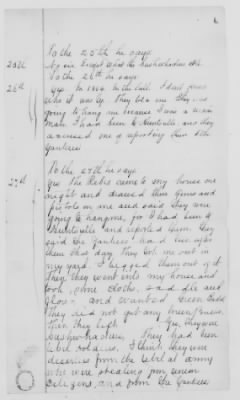 To the 25th he says
25th No one except what the bushwhackers did.
To the 26th he says
26th Yes. In 1864 in the fall. I dont know
who it was by. They told me they was
going to hang me because I was a union
man. I had been to Huntsville and they
accused me of reporting them to the
Yankees
To the 27th he says
27th Yes the Rebs came to my house one
night and drawed their guns and
pistols on me and said they were
going to hang me, for I had been to
Huntsville and reported them. They
said the Yankees had run after
them that day. They took me out in
my yard. I begged them out of it
Then they went into my house and
took some cloths, and
and wanted Green backs
They did not get any
Then they left Yes, they were
bushwhackers. They had been
rebel soldiers. I think they were
deserters from the rebel army
who were stealing from union
citizens, and from the Yankees